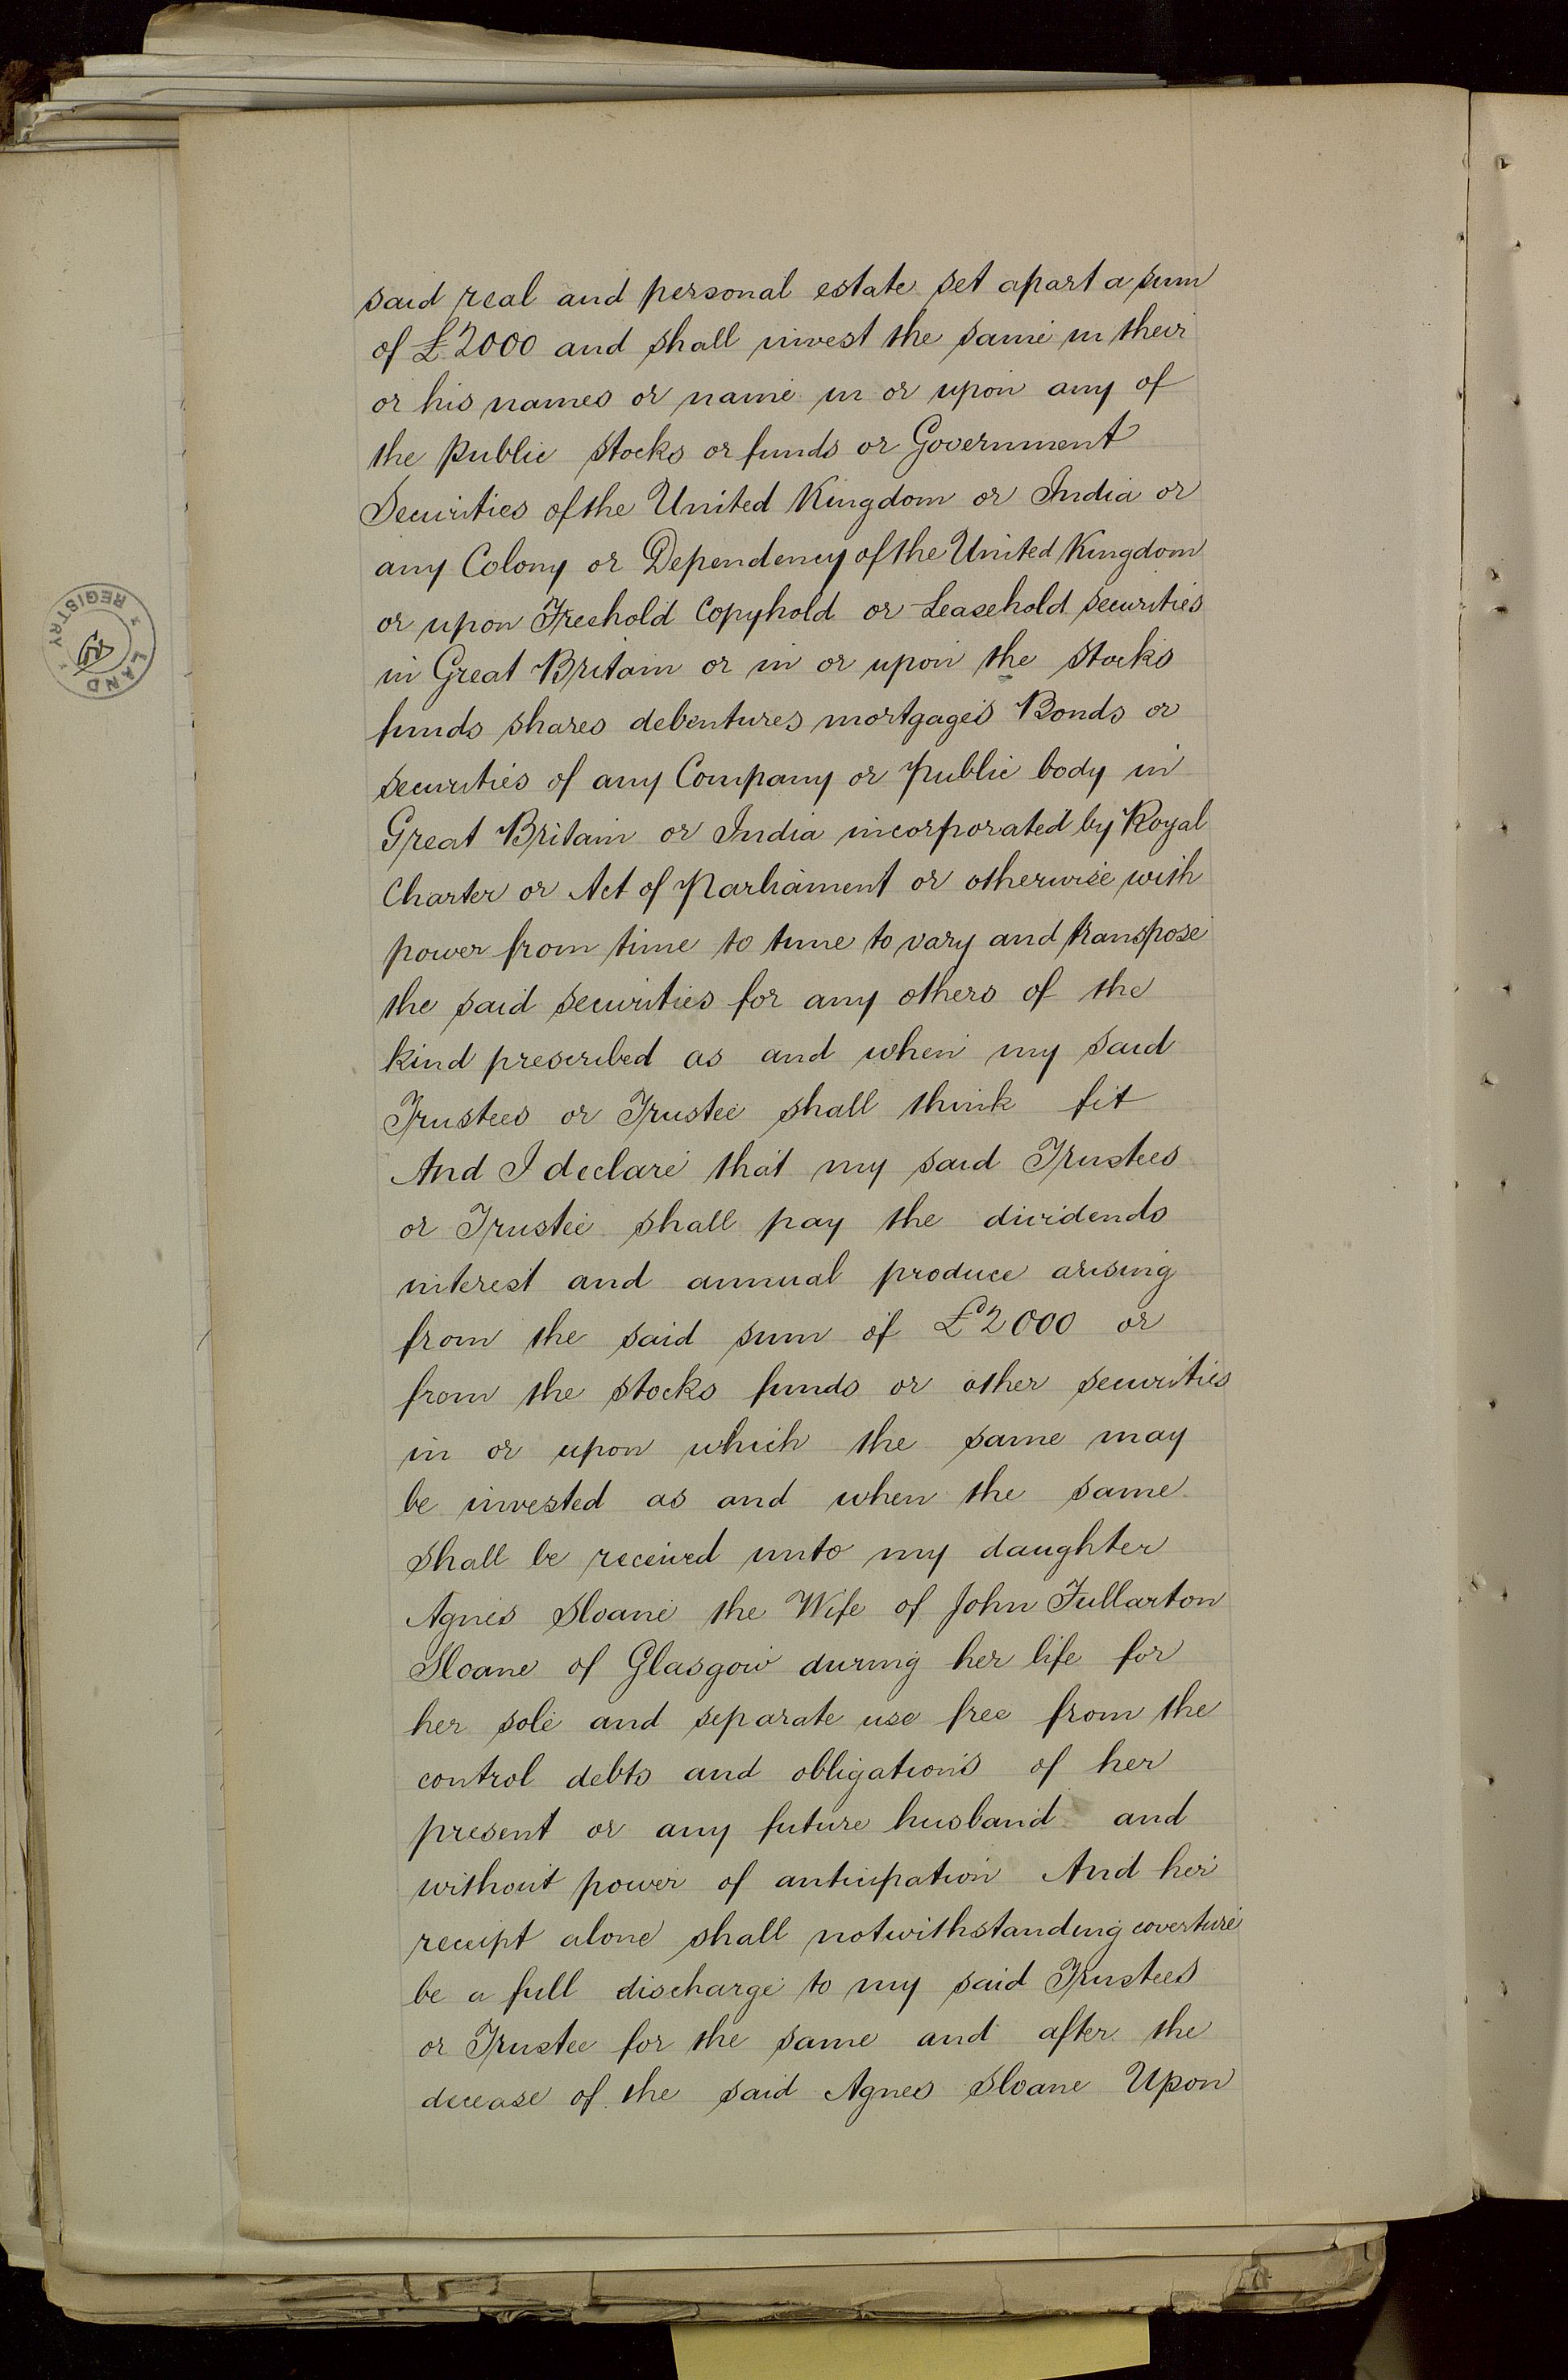 said real and personal estate set apart a sum
of £2000 and shall invest the same in their
or his names or name in or upon any of
the public stocks or funds or Government
Securities of the United Kingdom or India or
any Colony or Dependency of the United Kingdom
or upon Freehold Copyhold or Leasehold securities
in Great Britain or in or upon the stocks
funds shares debentures mortgages Bonds or
securities of any Company or public body in
Great Britain or India incorporated by Royal
Charter or Act of Parliament or otherwise with
power from time to time to vary and transpose
the said securities for any others of the
kind prescribed as and when my said
Trustees or Trustee shall think fit
And I declare that my said Trustees
or Trustee shall pay the dividends
interest and annual produce arising
from the said sum of £2000 or
from the stocks funds or other securities
in or upon which the same may
be invested as and when the same
shall be received unto my daughter
Agnes Sloane the Wife of John Fullarton
Sloane of Glasgow during her life for
her sole and separate use free from the
control debts and obligations of her
present or any future husband and
without power of anticipation And her
receipt alone shall notwithstanding coverture
be a full discharge to my said Trustees
or Trustee for the same and after the
decease of the said Agnes Sloane Upon
LAND REGISTRY